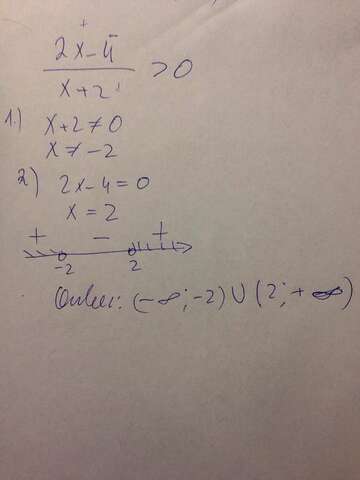 2x-4 / x+2 > 0
1.) x+2≠0
x≠-2
2) 2x-4=0
x=2
+ - +
-2 2
Ответ: (-∞;-2)∪(2;+∞)